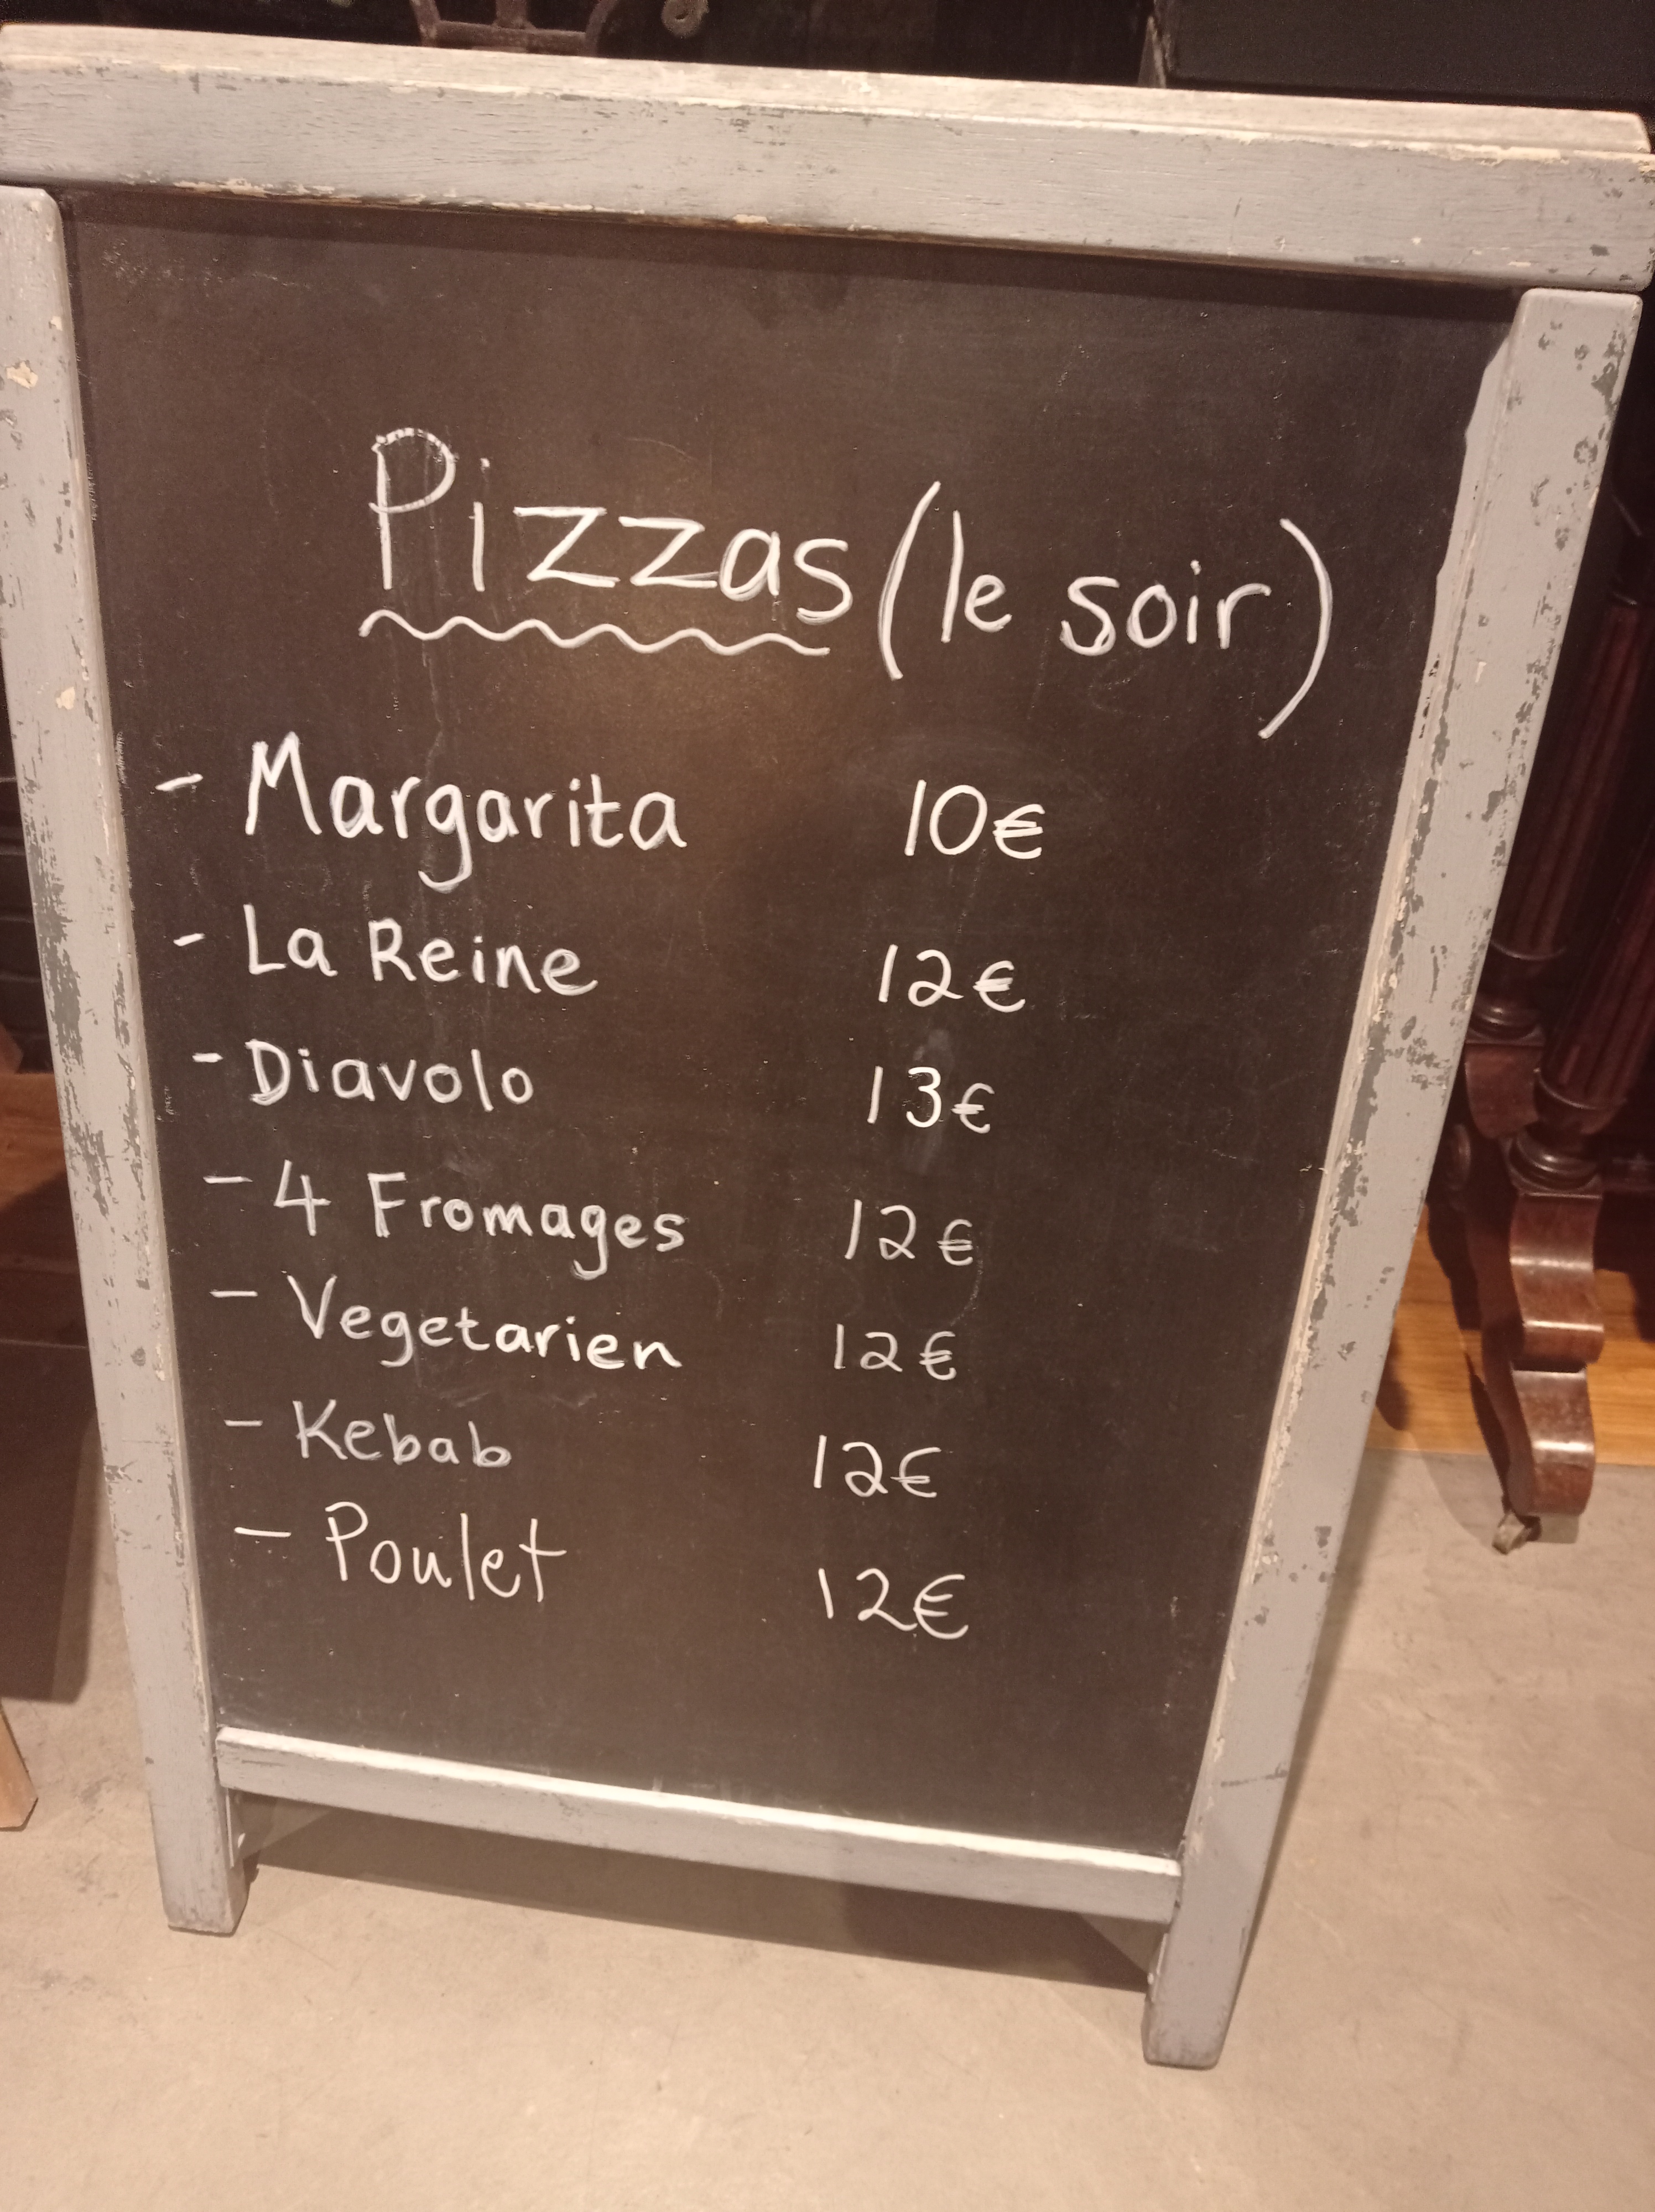 Pizzas (le soir)
- Margarita 10€
- La Reine 12€
- Diavolo 13€
- 4 Fromages 12€
- Vegetarien 12€
- Kebab 12€
- Poulet 12€